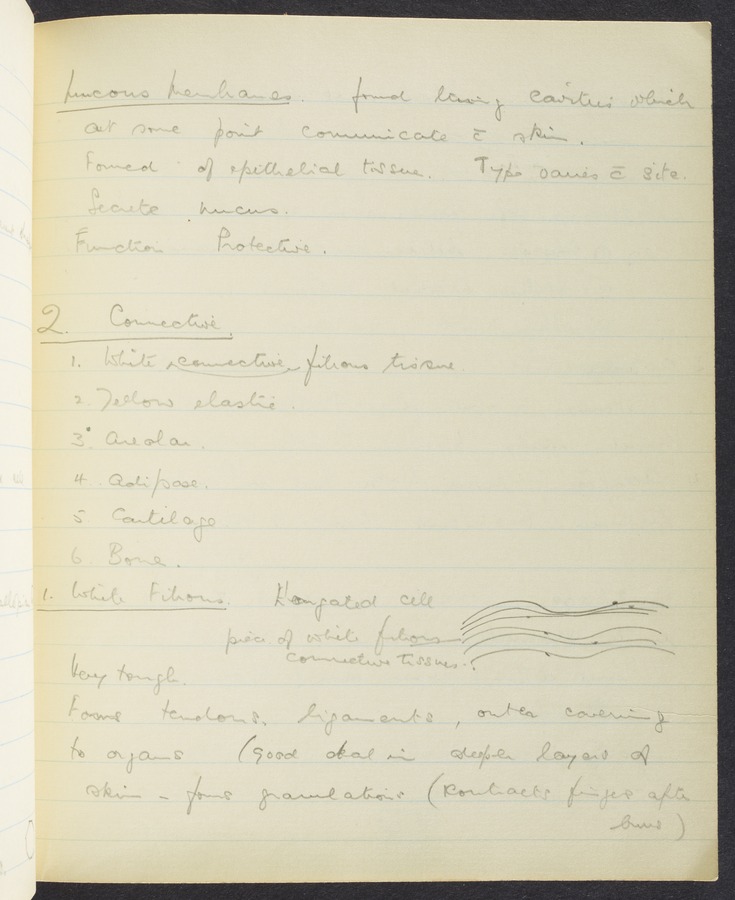 Mucous Membranes. found lining cavities which
at some point communicate c̄ skin.
Formed of epithelial tissue. Type varies c̄ site.
Secrete mucus.
Function Protective.
2. Connective.
1. White connective fibrous tissue
2. Yellow elastic.
3. Areolar.
4. Adipose.
5. Cartilage
6. Bone.
1. White Fibrous. Elongated cell
piece of white fibrous
connective tissues.
Very tough.
Forms tendons, ligaments, outer covering
to organs (good deal in deeper layers of
skin - forms granulations (contracts fingers after
burns)